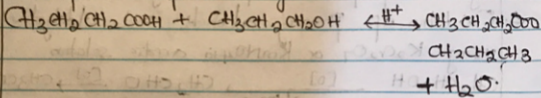 CH3CH2CH2COOH + CH3CH2CH2OH ⇌ H+ CH3CH2CH2COO
CH2CH2CH3
+ H2O.